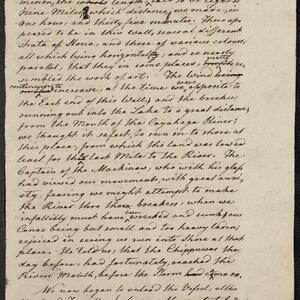 minion, the whole length, said to be eight or
Nine Miles, which distance, we made, in
one hours, and thirty five minutes. There ap=
peared to be in this wall, several different
Strata of Stone, and those of various colours,
all which lying horizontally, and so nearly
parallel, that they in some places, greatly re=
sembled the work of art. The Wind being
continuing to increase, at the time we were opposite to
the East end of this Wall, and the breakers
running out into the Lake to a great distance,
from the Mouth of the Cayahaga River;
we thought it safest, to run in to shore at
this place, from which the land was lower &
level for the last Mile to the River. The
Captain of the Mackinaw, who with his glass,
had viewed our movements, with great anxi=
ety, fearing we might attempt to make
the River thro' the breakers, when we
infallibly must have even wrecked and sunk, our
Canoe being but small and too heavy laden;
rejoiced in seeing us run into Shore at that
place. He told us, that the Chippewas the
day before, had fortunately, reached the
River Mouth, before the Storm came on.
We now began to unload the Vessel, all the